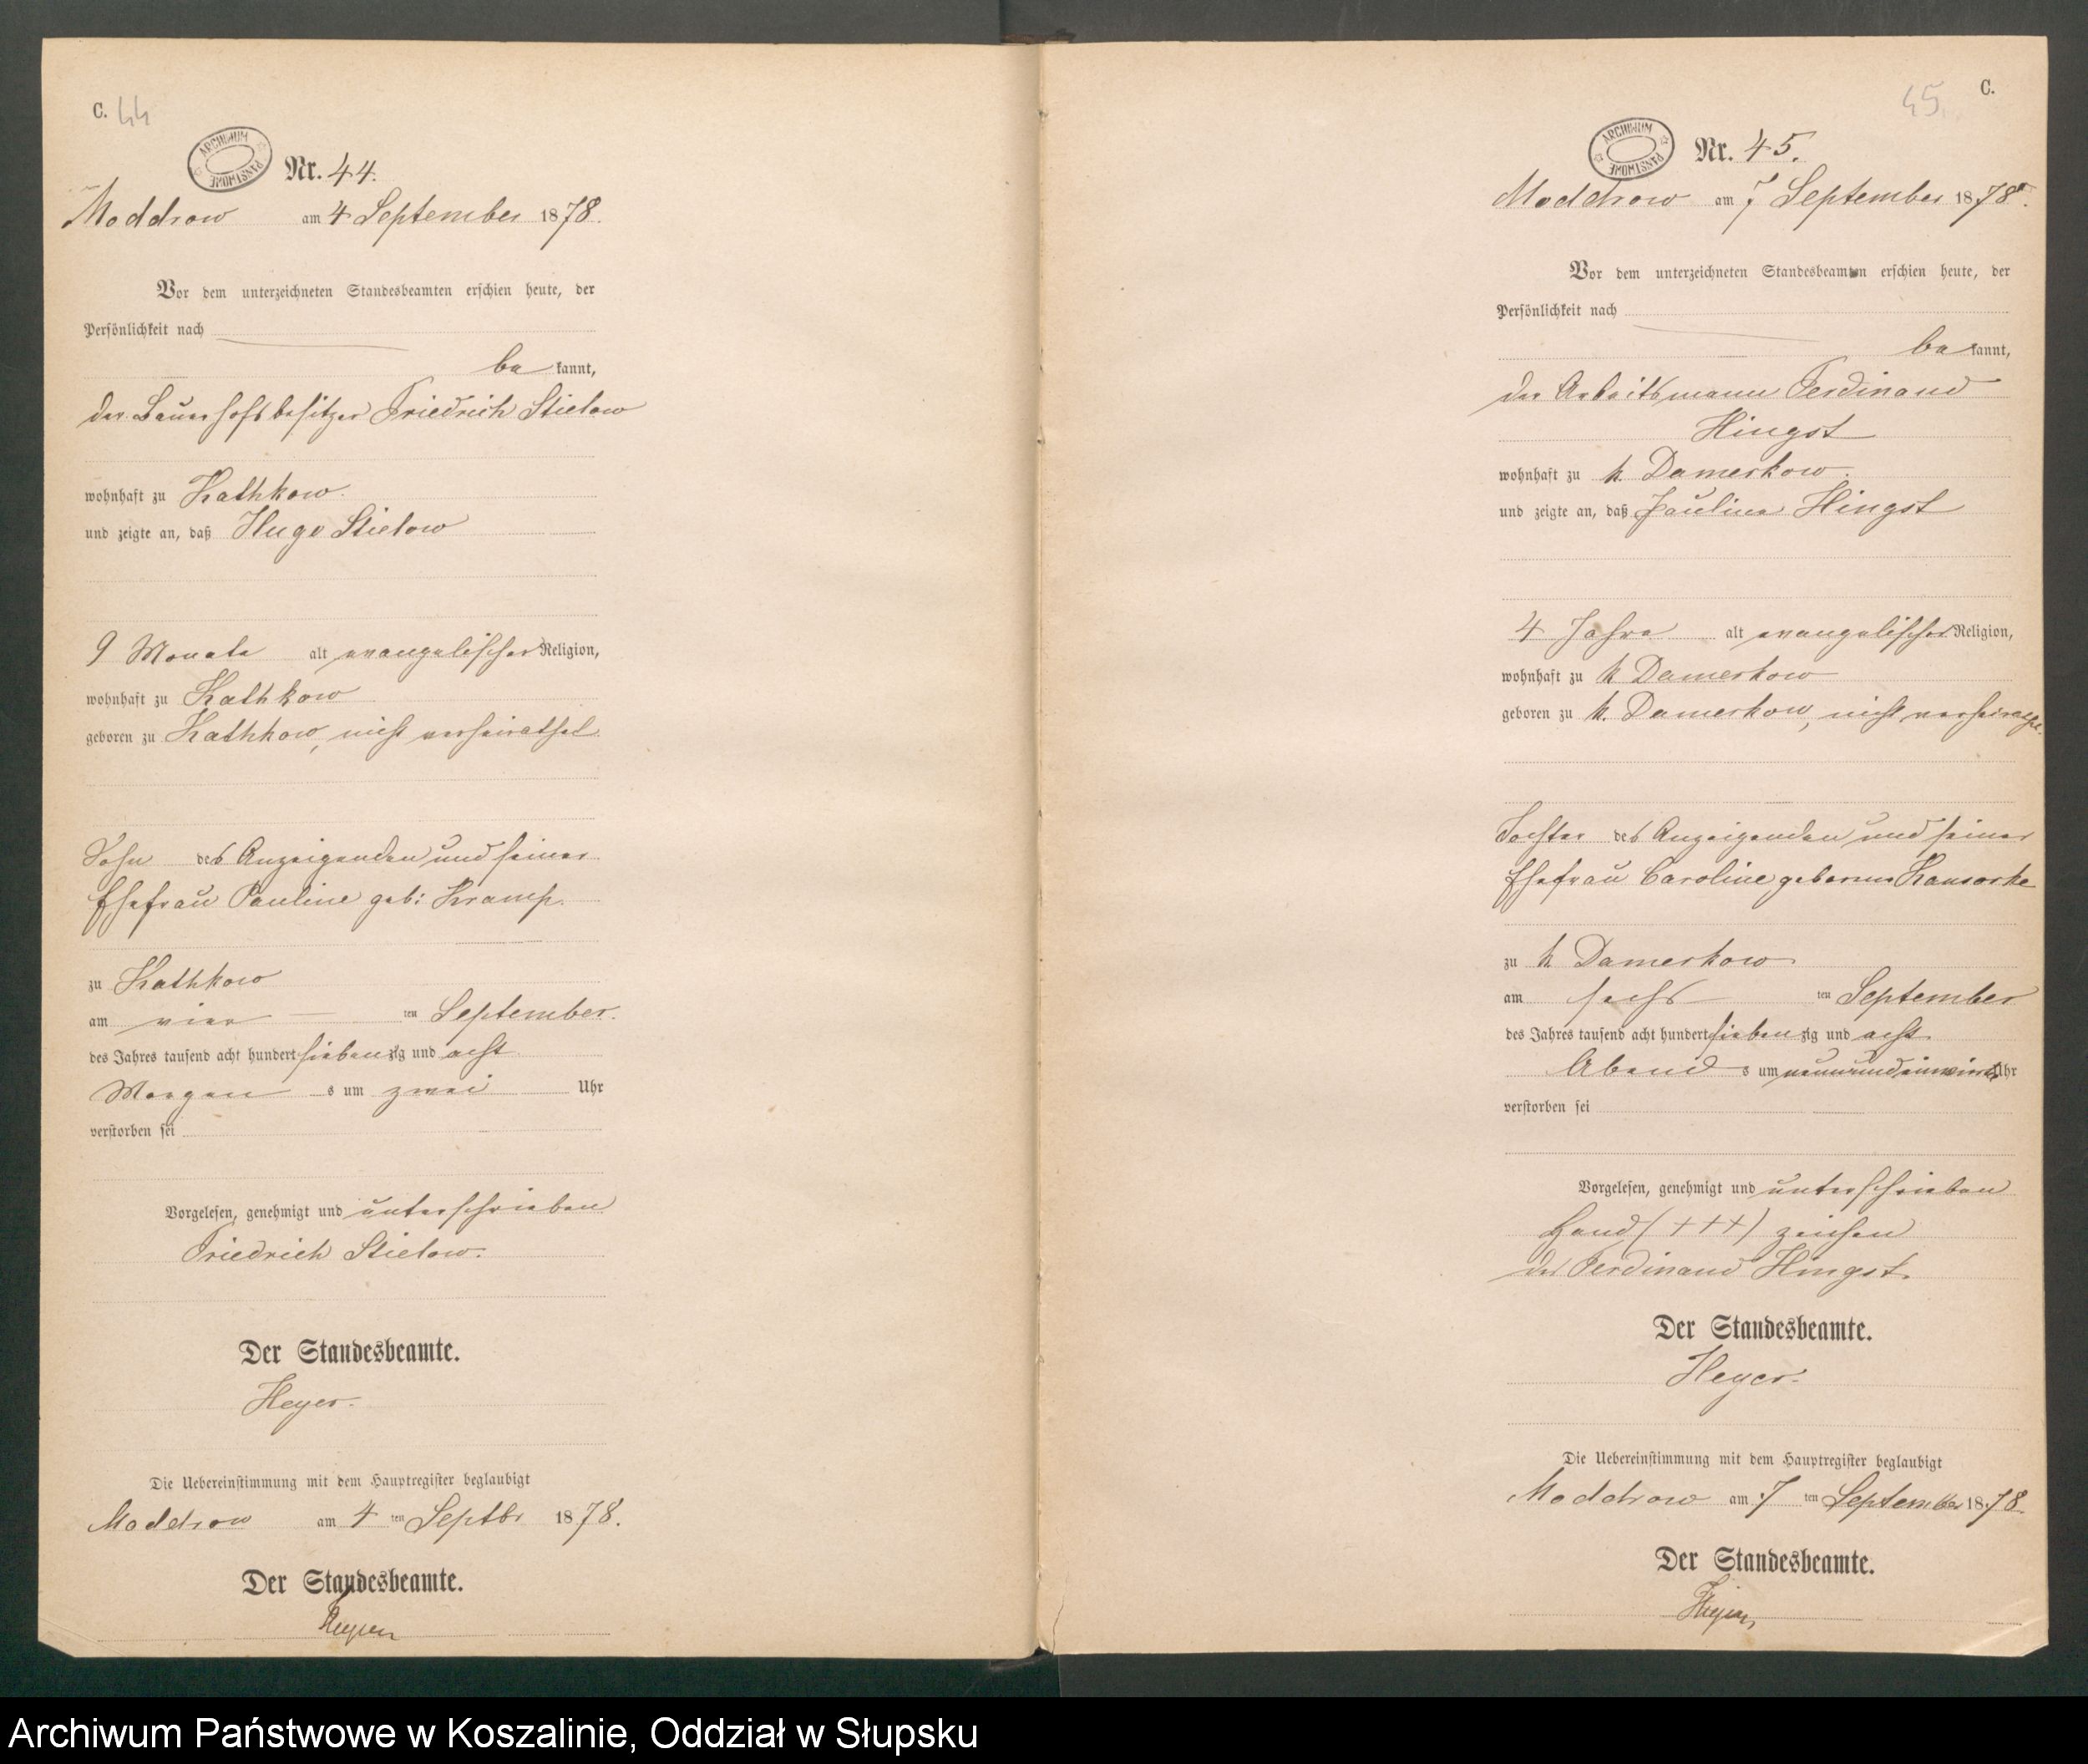 C. 44
ARCHIWUM PAŃSTWOWE
Nr. 44.
Moddrow am 4 September 1878.
Vor dem unterzeichneten Standesbeamten erschien heute, der
Persönlichkeit nach
be kannt,
der Bauerhofsbesitzer Friedrich Stielow
wohnhaft zu Kathkow.
und zeigte an, daß Hugo Stielow
9 Monate alt evangelischer Religion,
wohnhaft zu Kathkow
geboren zu Kathkow, nicht verheirathet
Sohn des Anzeigenden und seiner
Ehefrau Pauline geb: Kramp.
zu Kathkow
am vier ten September.
des Jahres tausend acht hundert siebenzig und acht
Morgen s um zwei Uhr
verstorben sei
Vorgelesen, genehmigt und unterschrieben
Friedrich Stielow.
Der Standesbeamte.
Heyer.
Die Uebereinstimmung mit dem Hauptregister beglaubigt
Moddrow am 4 ten Septbr 1878.
Der Standesbeamte.
Heyer
45. C.
ARCHIWUM PAŃSTWOWE
Nr. 45.
Moddrow am 7 September 1878.
Vor dem unterzeichneten Standesbeamten erschien heute, der
Persönlichkeit nach
be kannt,
der Arbeitsmann Ferdinand
Hingst
wohnhaft zu k. Damerkow.
und zeigte an, daß Pauline Hingst
4 Jahre alt evangelischer Religion,
wohnhaft zu k Damerkow
geboren zu k. Damerkow, nicht verheirathet.
Tochter des Anzeigenden und seiner
Ehefrau Caroline geborene
zu k Damerkow
am sechs ten September
des Jahres tausend acht hundert siebenzig und acht
Abend s um neun und einviertel Uhr
verstorben sei
Vorgelesen, genehmigt und unterschrieben
Hand (+++) zeichen
des Ferdinand Hingst.
Der Standesbeamte.
Heyer.
Die Uebereinstimmung mit dem Hauptregister beglaubigt
Moddrow am 7 ten September 1878.
Der Standesbeamte.
Heyer,
Archiwum Państwowe w Koszalinie, Oddział w Słupsku